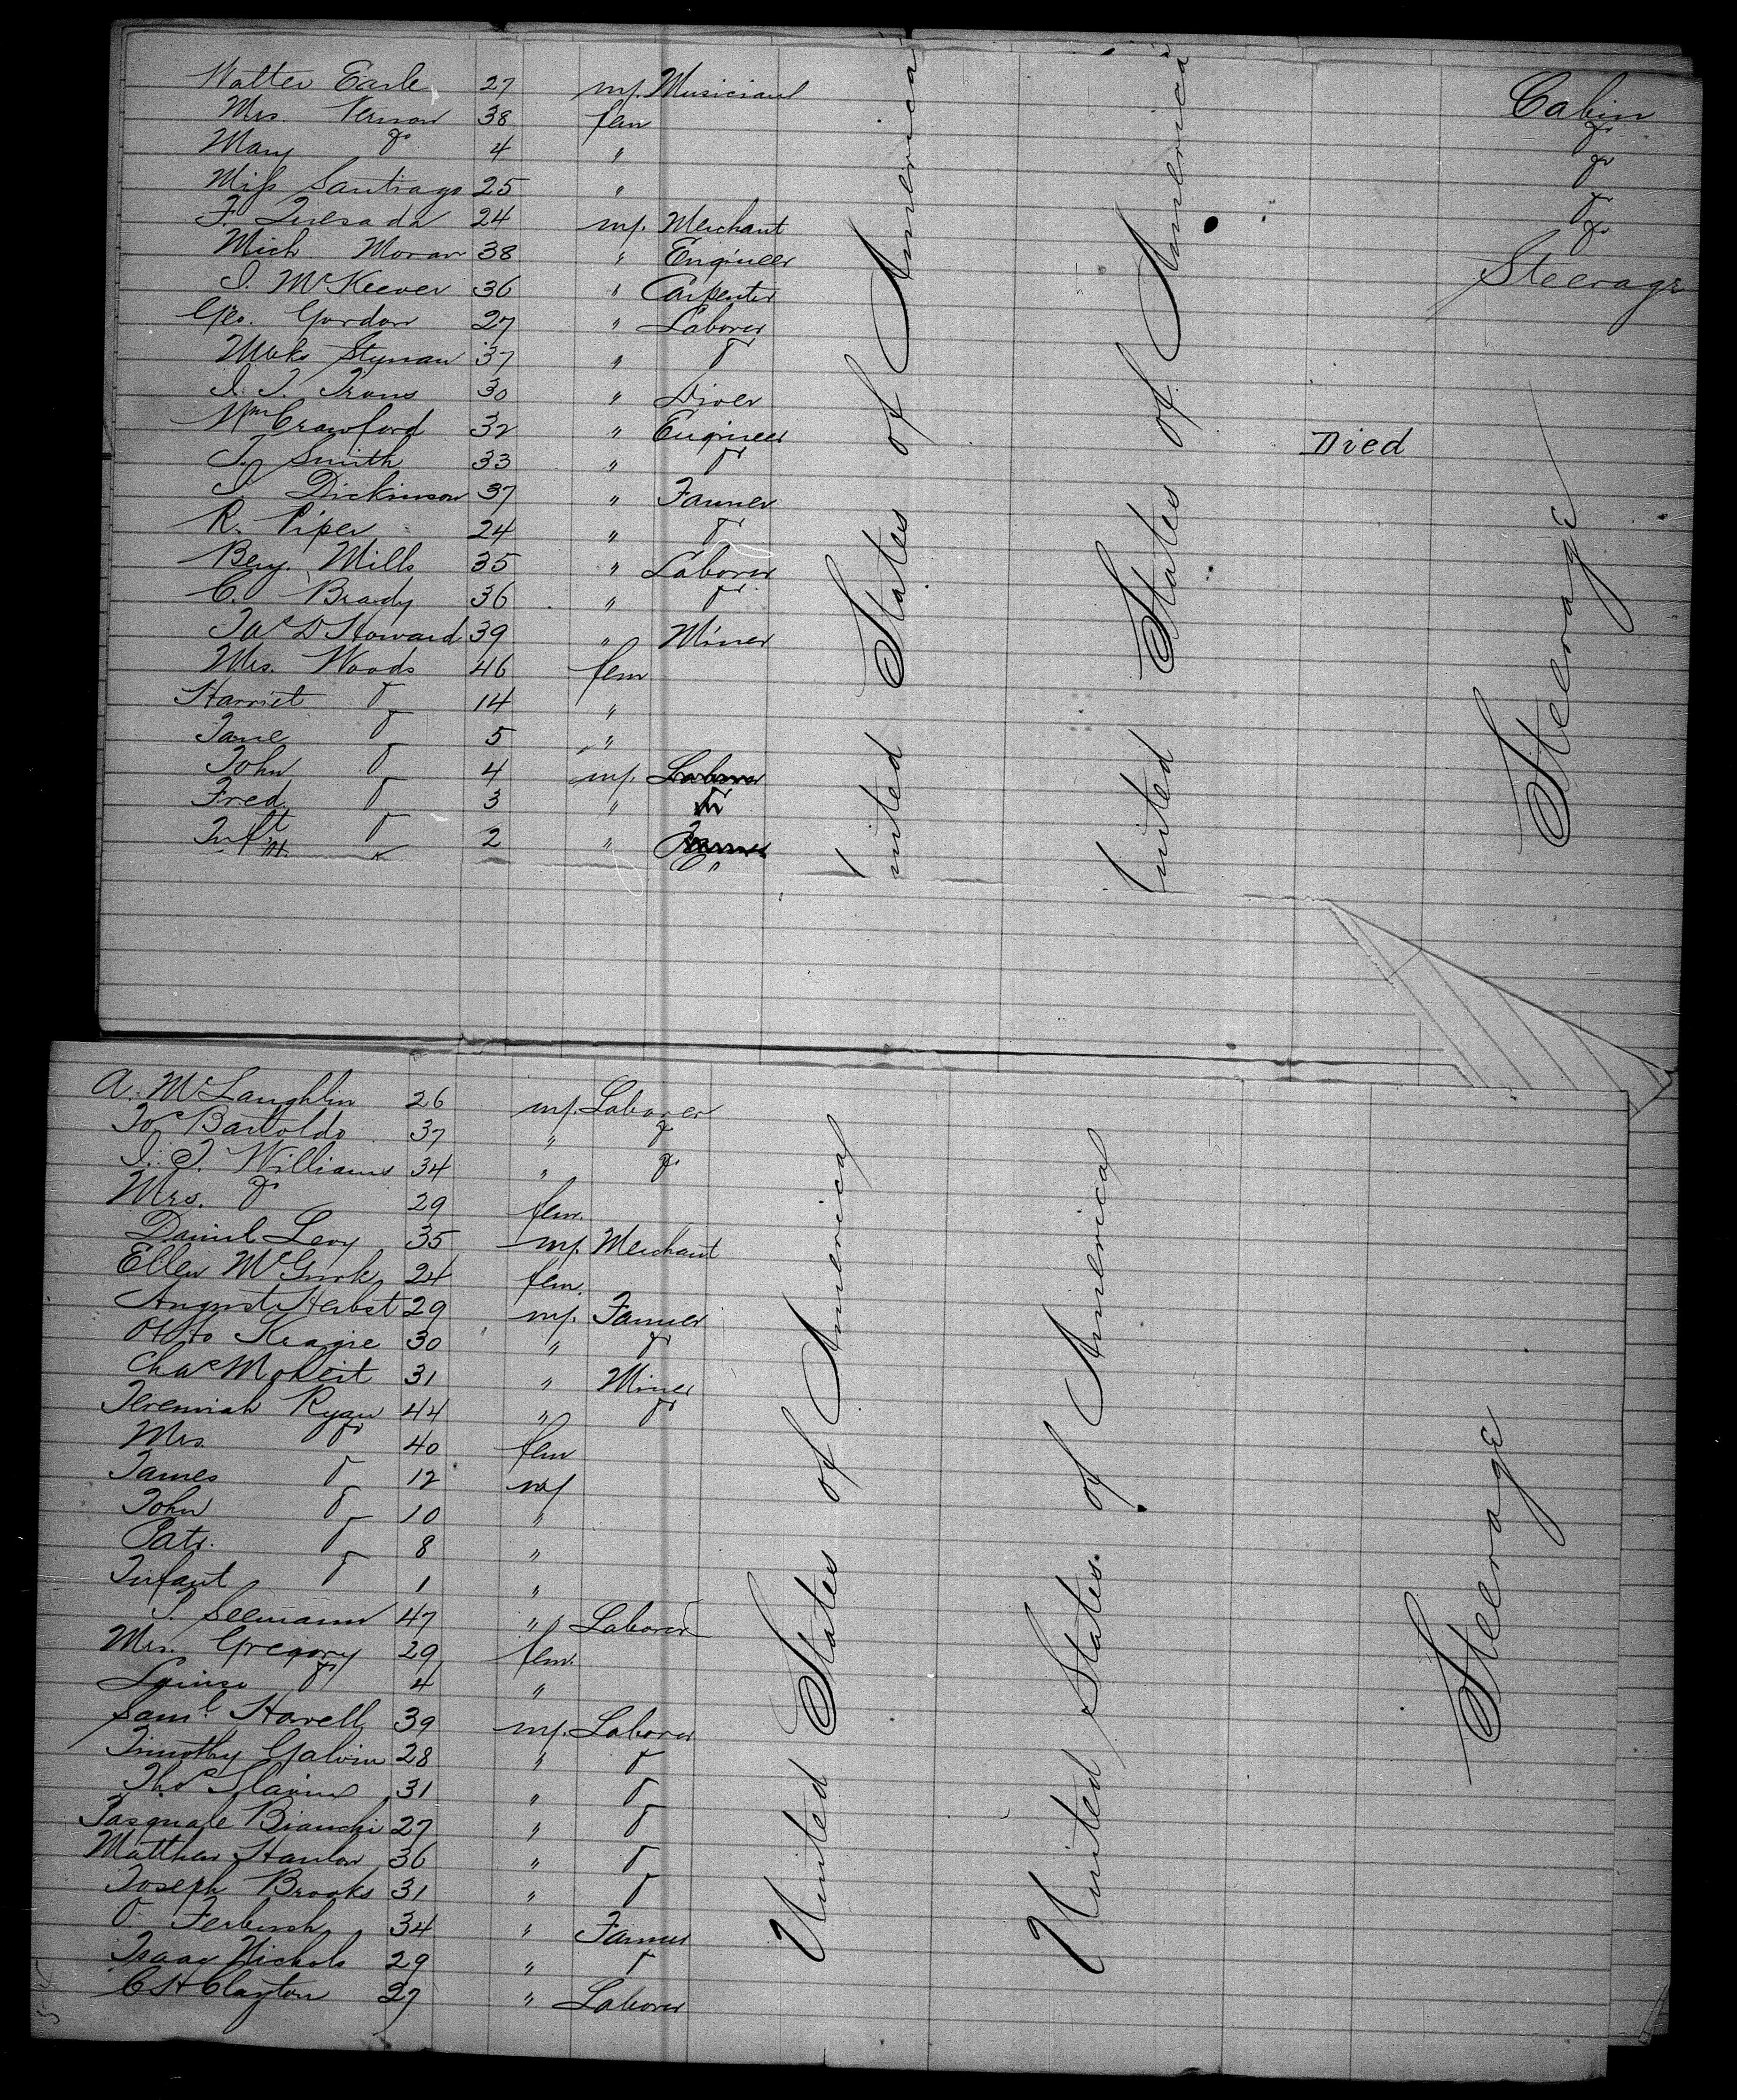 Walter Earle 27 m. Musician Cabin
Mrs. Vernon 38 fem do
Mary do 4 " do
Miss Santiago 25 " do
F. Quesada 24 m. Merchant do
Mich. Moran 38 " Engineer Steerage
J. McKeever 36 " Carpenter
Geo. Gordon 27 " Laborer
Styman 37 " do
30 " Diver
Wm Crawford 32 " Engineer Died
J. Smith 33 " do
J. Dickinson 37 " Farmer
R. Piper 24 " do
Benj. Mills 35 " Laborer
C. Brady 36 " do
Jas D Howard 39 " Miner
Mrs. Woods 46 fem
Harriet do 14 "
Jane do 5 "
John do 4 m. Laborer
Fred. do 3 " do
Inft do 2 "
United States of America
United States of America
Steerage
A. McLaughlin 26 m. Laborer
Bartoldo 37 " do
J. J. Williams 34 " do
Mrs. do 29 fem.
Daniel Levy 35 m. Merchant
Ellen McGurk 24 fem.
August Herbst 29 m. Farmer
Otto 30 " do
Chas 31 " Miner
Jeremiah Ryan 44 " do
Mrs. do 40 fem
James do 12 m
John do 10 "
Patr. do 8 "
Infant do 1 "
Seemann 47 " Laborer
Mrs. Gregory 29 fem.
Louisa do 4 "
Saml. Havell 39 m. Laborer
Timothy Galvin 28 " do
Thos Slavin 31 " do
Pasquale Bianchi 27 " do
Matthew Hanlon 36 " do
Joseph Brooks 31 " do
34 " Farmer
Isaac Nichols 29 " do
C H Clayton 27 " Laborer
United States of America
United States of America
Steerage